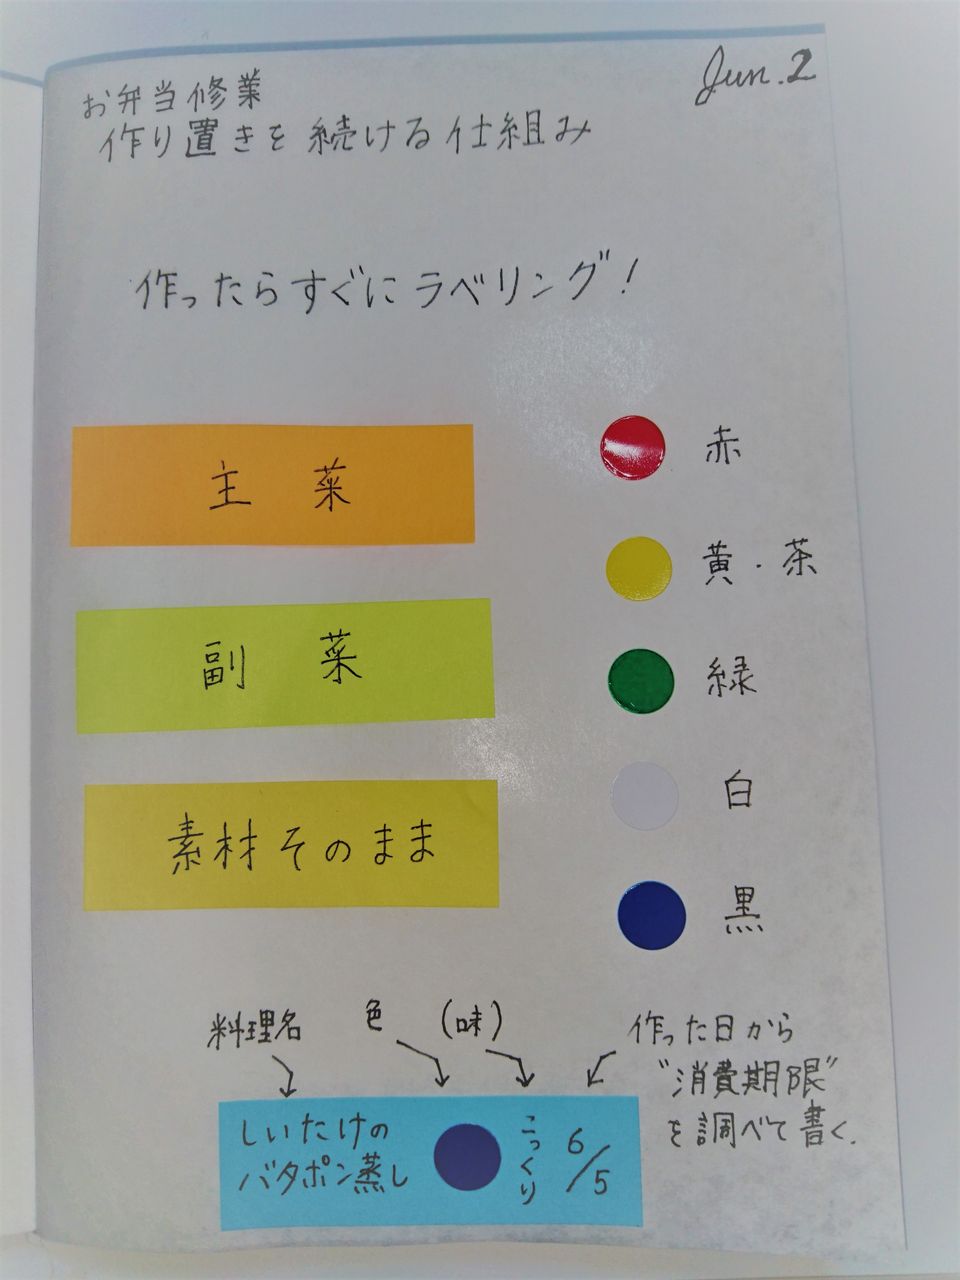 Jun.2
お弁当修業
作り置きを続ける仕組み
作ったらすぐにラベリング!
主菜
副菜
素材そのまま
赤
黄・茶
緑
白
黒
料理名
色
(味)
作った日から
"消費期限"
を調べて書く.
しいたけの
バタポン蒸し
こっくり
6/5